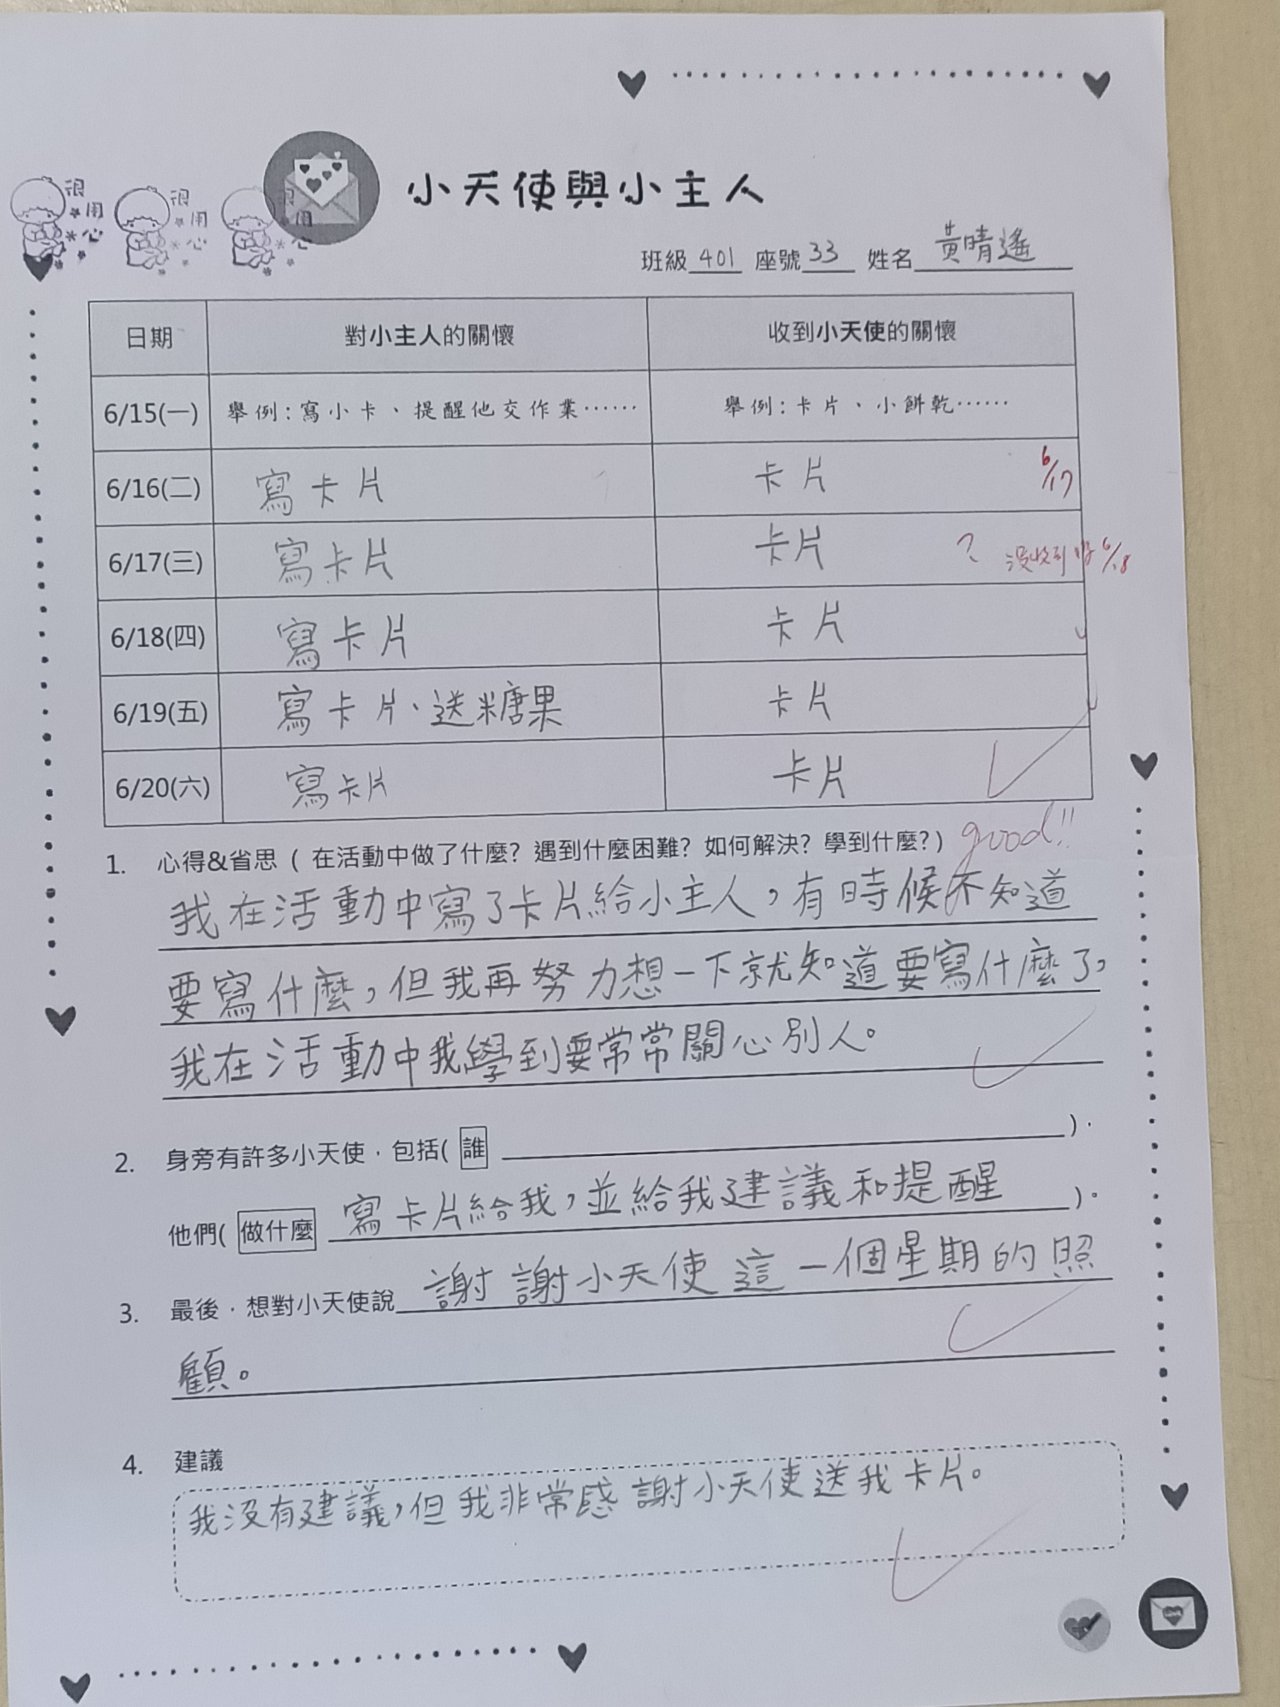 小天使與小主人
很用心 很用心 很用心
班級 401 座號 33 姓名 黃晴遙
日期 對小主人的關懷 收到小天使的關懷
6/15(一) 舉例:寫小卡、提醒他交作業…… 舉例:卡片、小餅乾……
6/16(二) 寫卡片 卡片 6/17
6/17(三) 寫卡片 卡片 ? 沒收到 6/18
6/18(四) 寫卡片 卡片
6/19(五) 寫卡片、送糖果 卡片
6/20(六) 寫卡片 卡片
good!!
1. 心得&省思 ( 在活動中做了什麼? 遇到什麼困難? 如何解決? 學到什麼?)
我在活動中寫了卡片給小主人,有時候不知道
要寫什麼,但我再努力想一下就知道要寫什麼了,
我在活動中我學到要常常關心別人。
2. 身旁有許多小天使,包括( 誰 )。
他們( 做什麼 寫卡片給我,並給我建議和提醒 )。
3. 最後,想對小天使說 謝謝小天使這一個星期的照
顧。
4. 建議
我沒有建議,但我非常感謝小天使送我卡片。